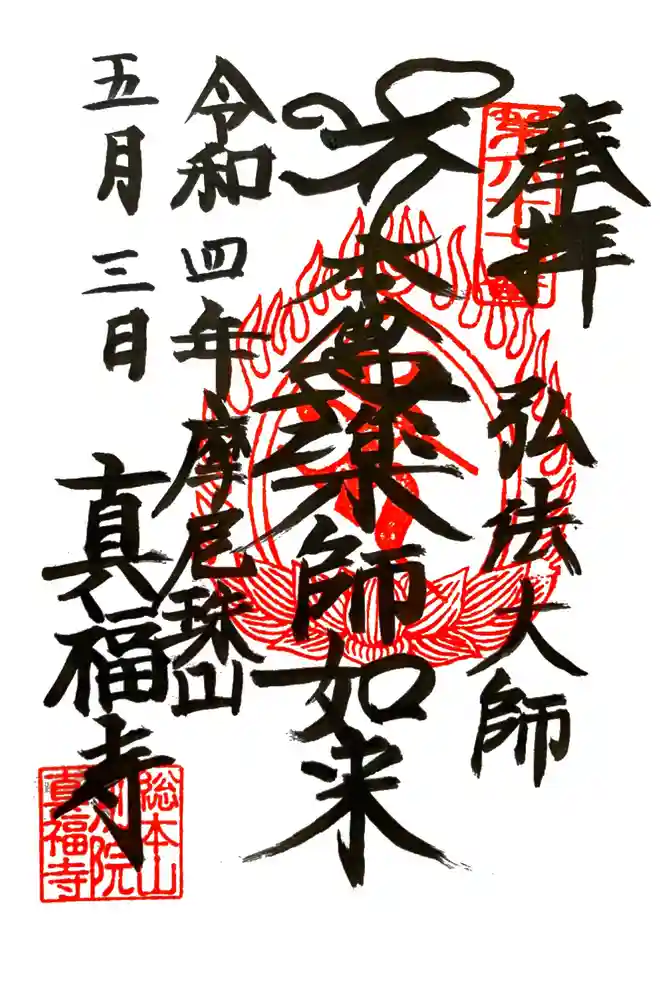 奉拝
弘法大師
本尊薬師如来
令和四年
摩尼珠山
五月三日
真福寺
総本山
別院
真福寺